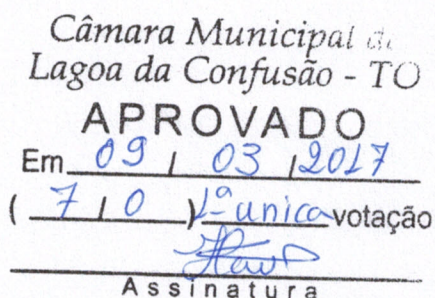 Câmara Municipal de
Lagoa da Confusão - TO
APROVADO
Em 09 / 03 / 2017
( 7 / 0 ) 1ª unica votação
Assinatura